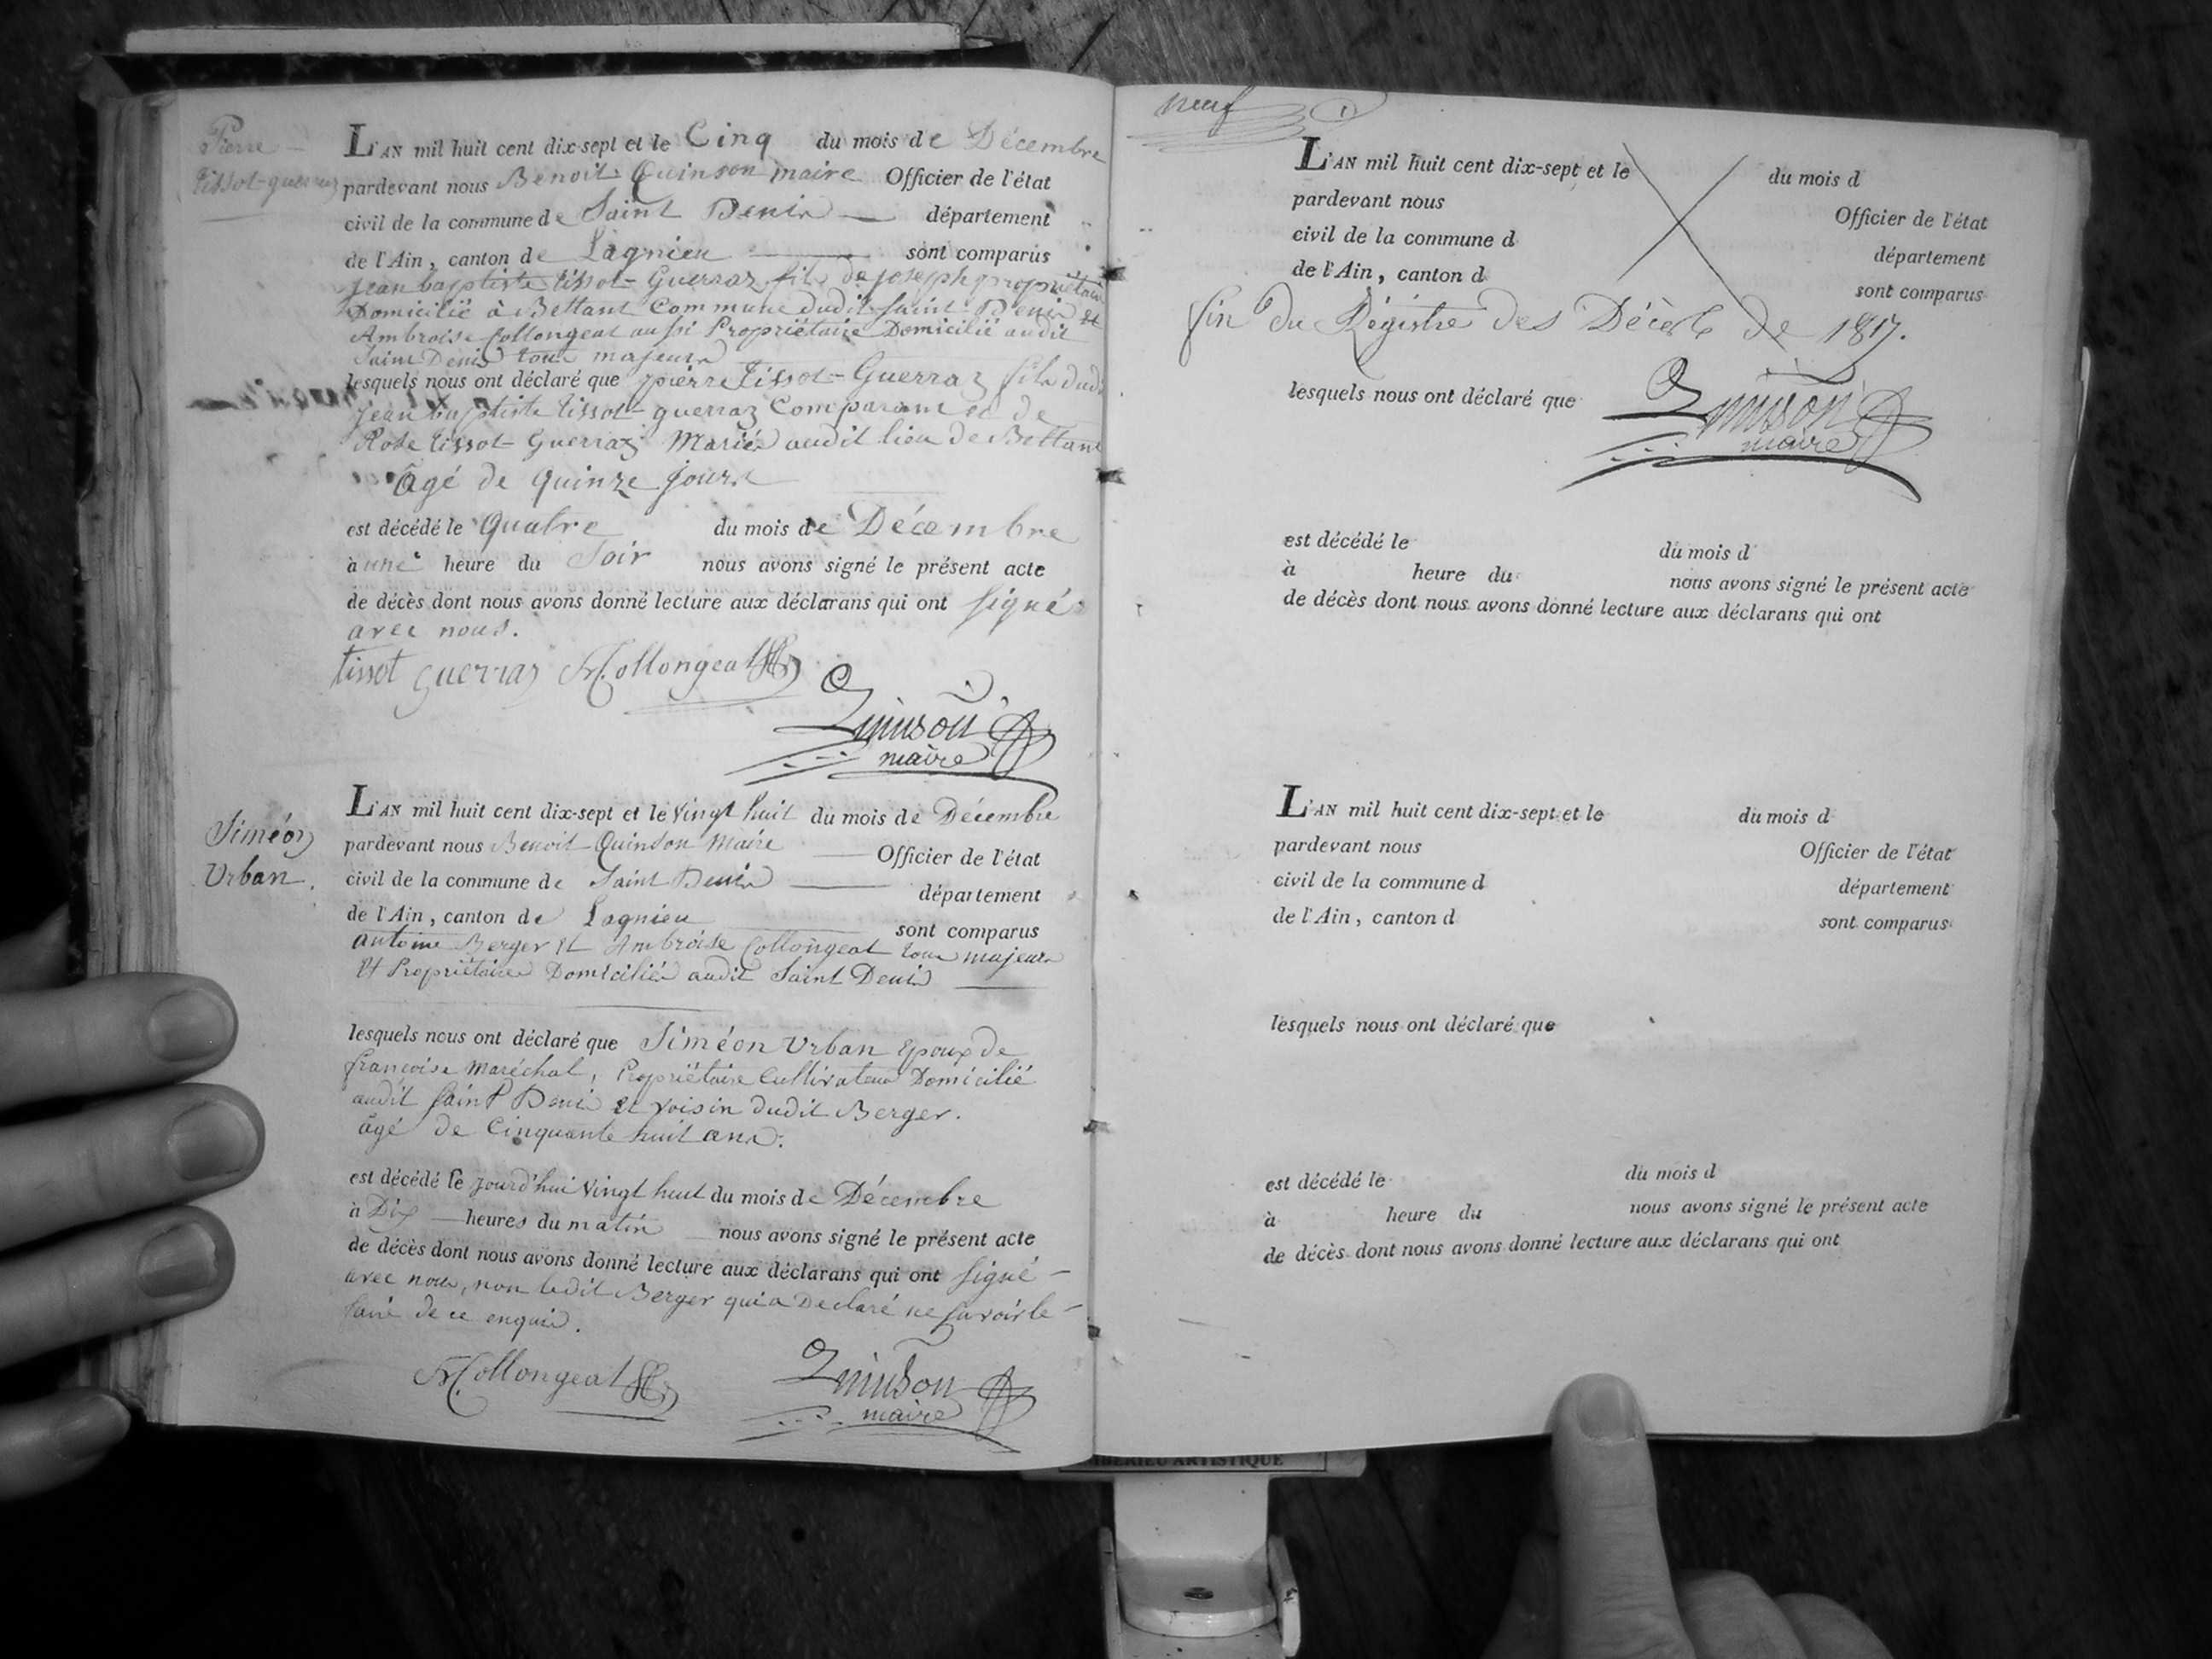 Pierre
tissot-guerraz
L'AN mil huit cent dix-sept et le Cinq du mois de Décembre
pardevant nous Benoit Quinson maire Officier de l'état
civil de la commune de Saint Denis département
de l'Ain, canton de Lagnieu sont comparus
Jean baptiste tissot-Guerraz fils de joseph propriétaire
Domicilié à Bettant Commune dudit Saint Denis et
Ambroise Collongeat aussi Propriétaire Domicilié audit
Saint Denis tous majeurs
lesquels nous ont déclaré que pierre tissot-Guerraz fils dud.
jean baptiste tissot-guerraz Comparant et de
Rose tissot-Guerraz Mariés audit lieu de Bettant
âgé de quinze jours
est décédé le quatre du mois de Décembre
à une heure du Soir nous avons signé le présent acte
de décès dont nous avons donné lecture aux déclarans qui ont signé
avec nous.
tissot guerraz Collongeat
Quinson
maire
Siméon
Urban.
L'AN mil huit cent dix-sept et le vingt huit du mois de Décembre
pardevant nous Benoit Quinson Maire Officier de l'état
civil de la commune de Saint Denis département
de l'Ain, canton de Lagnieu sont comparus
antoine Berger et Ambroise Collongeat tous majeurs
et Propriétaires Domiciliés audit Saint Denis
lesquels nous ont déclaré que Siméon Urban Epoux de
françoise Maréchal, Propriétaire Cultivateur Domicilié
audit Saint Denis et voisin dudit Berger.
âgé de Cinquante huit ans.
est décédé le jourd'hui vingt huit du mois de Décembre
à Dix heures du matin nous avons signé le présent acte
de décès dont nous avons donné lecture aux déclarans qui ont signé
avec nous, non ledit Berger qui a Déclaré ne savoir le
faire de ce enquis.
Collongeat
Quinson
maire
neuf
L'AN mil huit cent dix-sept et le du mois d
pardevant nous Officier de l'état
civil de la commune d département
de l'Ain, canton d sont comparus
fin du Régistre des Décès de 1817.
lesquels nous ont déclaré que
Quinson
maire
est décédé le du mois d
à heure du nous avons signé le présent acte
de décès dont nous avons donné lecture aux déclarans qui ont
L'AN mil huit cent dix-sept et le du mois d
pardevant nous Officier de l'état
civil de la commune d département
de l'Ain, canton d sont comparus
lesquels nous ont déclaré que
est décédé le du mois d
à heure du nous avons signé le présent acte
de décès dont nous avons donné lecture aux déclarans qui ont
ARTISTIQUE